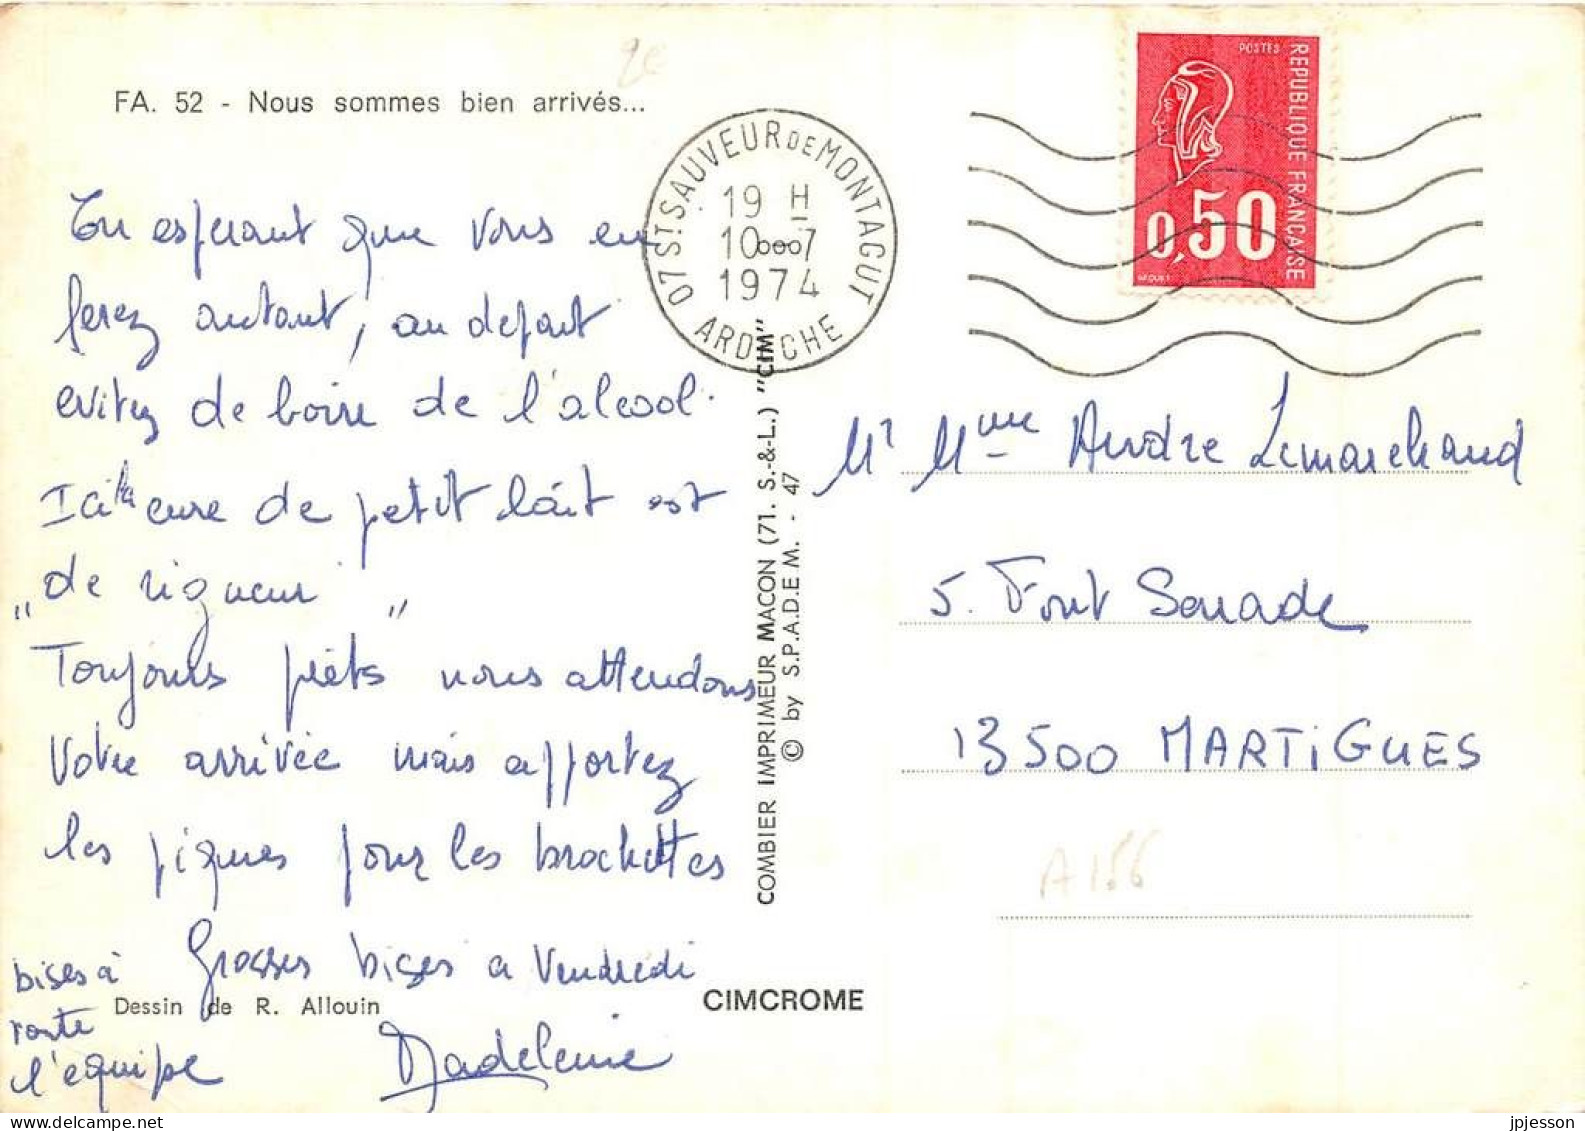 FA. 52 - Nous sommes bien arrivés...
En esperant que vous en
ferez autant, au depart
evitez de boire de l'alcool.
Ici la cure de petit lait est
"de rigueur"
Toujours prêts nous attendons
Votre arrivée mais apportez
les piques pour les brochettes
Grosses bises a Vendredi
Madeleine
bises à
toute
l'equipe
Dessin de R. Allouin
CIMCROME
COMBIER IMPRIMEUR MACON (71. S.-&-L.) "CIM"
© by S.P.A.D.E.M. - 47
07 ST SAUVEUR DE MONTAGUT
19 H
10 7
1974
ARDECHE
POSTES
REPUBLIQUE FRANÇAISE
0,50
Mr Mme Andre Lemarchand
5. Font Sarade
13500 MARTIGUES
A156
jpjesson